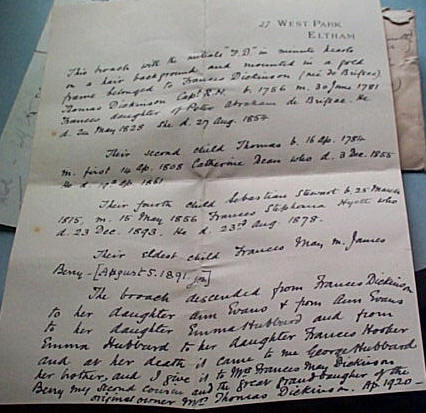 27 WEST PARK
ELTHAM
This broach with the initials "F.D" in minute hearts
on a hair background and mounted in a gold
frame belonged to Frances Dickinson (née de Brissac)
Thomas Dickinson Capt R.N. b. 1756 m. 30 June 1781
Frances daughter of Peter Abraham de Brissac. He
d. 20 May 1828 She d. 27 Aug. 1854
Their second child Thomas b. 16 Ap. 1784
m. first 14 Ap. 1808 Catherine Dean who d. 3 Dec. 1855
He d. Ap 1861
Their fourth child Sebastian Stewart b. 25 March
1815, m. 15 May 1856 Frances Stephana Hyett who
d. 23 Dec. 1893. He d. 23rd Aug 1878.
Their eldest child Frances May m. James
Berry - [August 5. 1891.]
The broach descended from Frances Dickinson
to her daughter Ann Evans & from Ann Evans
to her daughter Emma Hubbard and from
Emma Hubbard to her daughter Frances Hooker
and at her death it came to me George Hubbard
her brother, and I give it to Mrs Frances May Dickinson
Berry my second cousin and the great grand daughter of the
original owner Mrs Thomas Dickinson. Ap. 1920 -